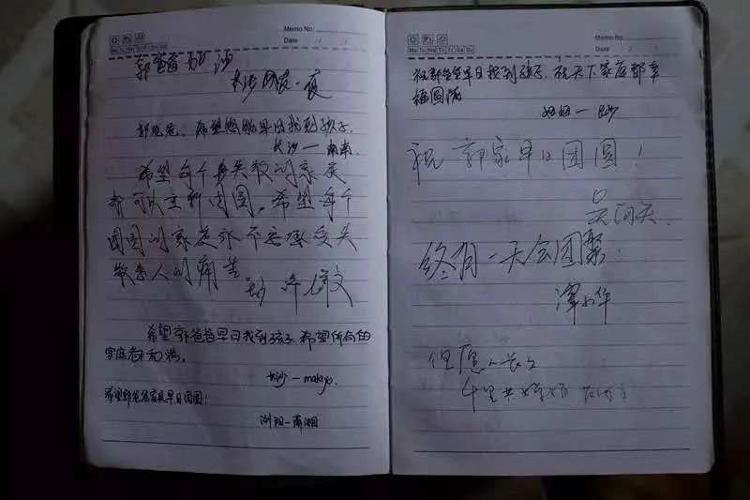 Memo No.
Date
Mo Tu We Th Fr Sa Su
郭爸爸加油
长沙
郭爸爸,希望您能早日找到孩子
长沙一
希望每个丢失孩的家庭
都可以重新团圆。希望每个
团圆的家庭永不要承受失
散亲人的痛苦
希望郭爸爸早日找到孩子,希望所有的
家庭都和满。
长沙一makiyo
希望郭爸爸家庭早日团圆!
浏阳一萧湘
Memo No.
Date
Mo Tu We Th Fr Sa Su
祝郭爸爸早日找到孩子,祝天下家庭都幸
福圆满
一长沙
祝郭家早日团圆!
吴向天
终有一天会团聚.
谭小华
但愿人长久
千里共婵娟